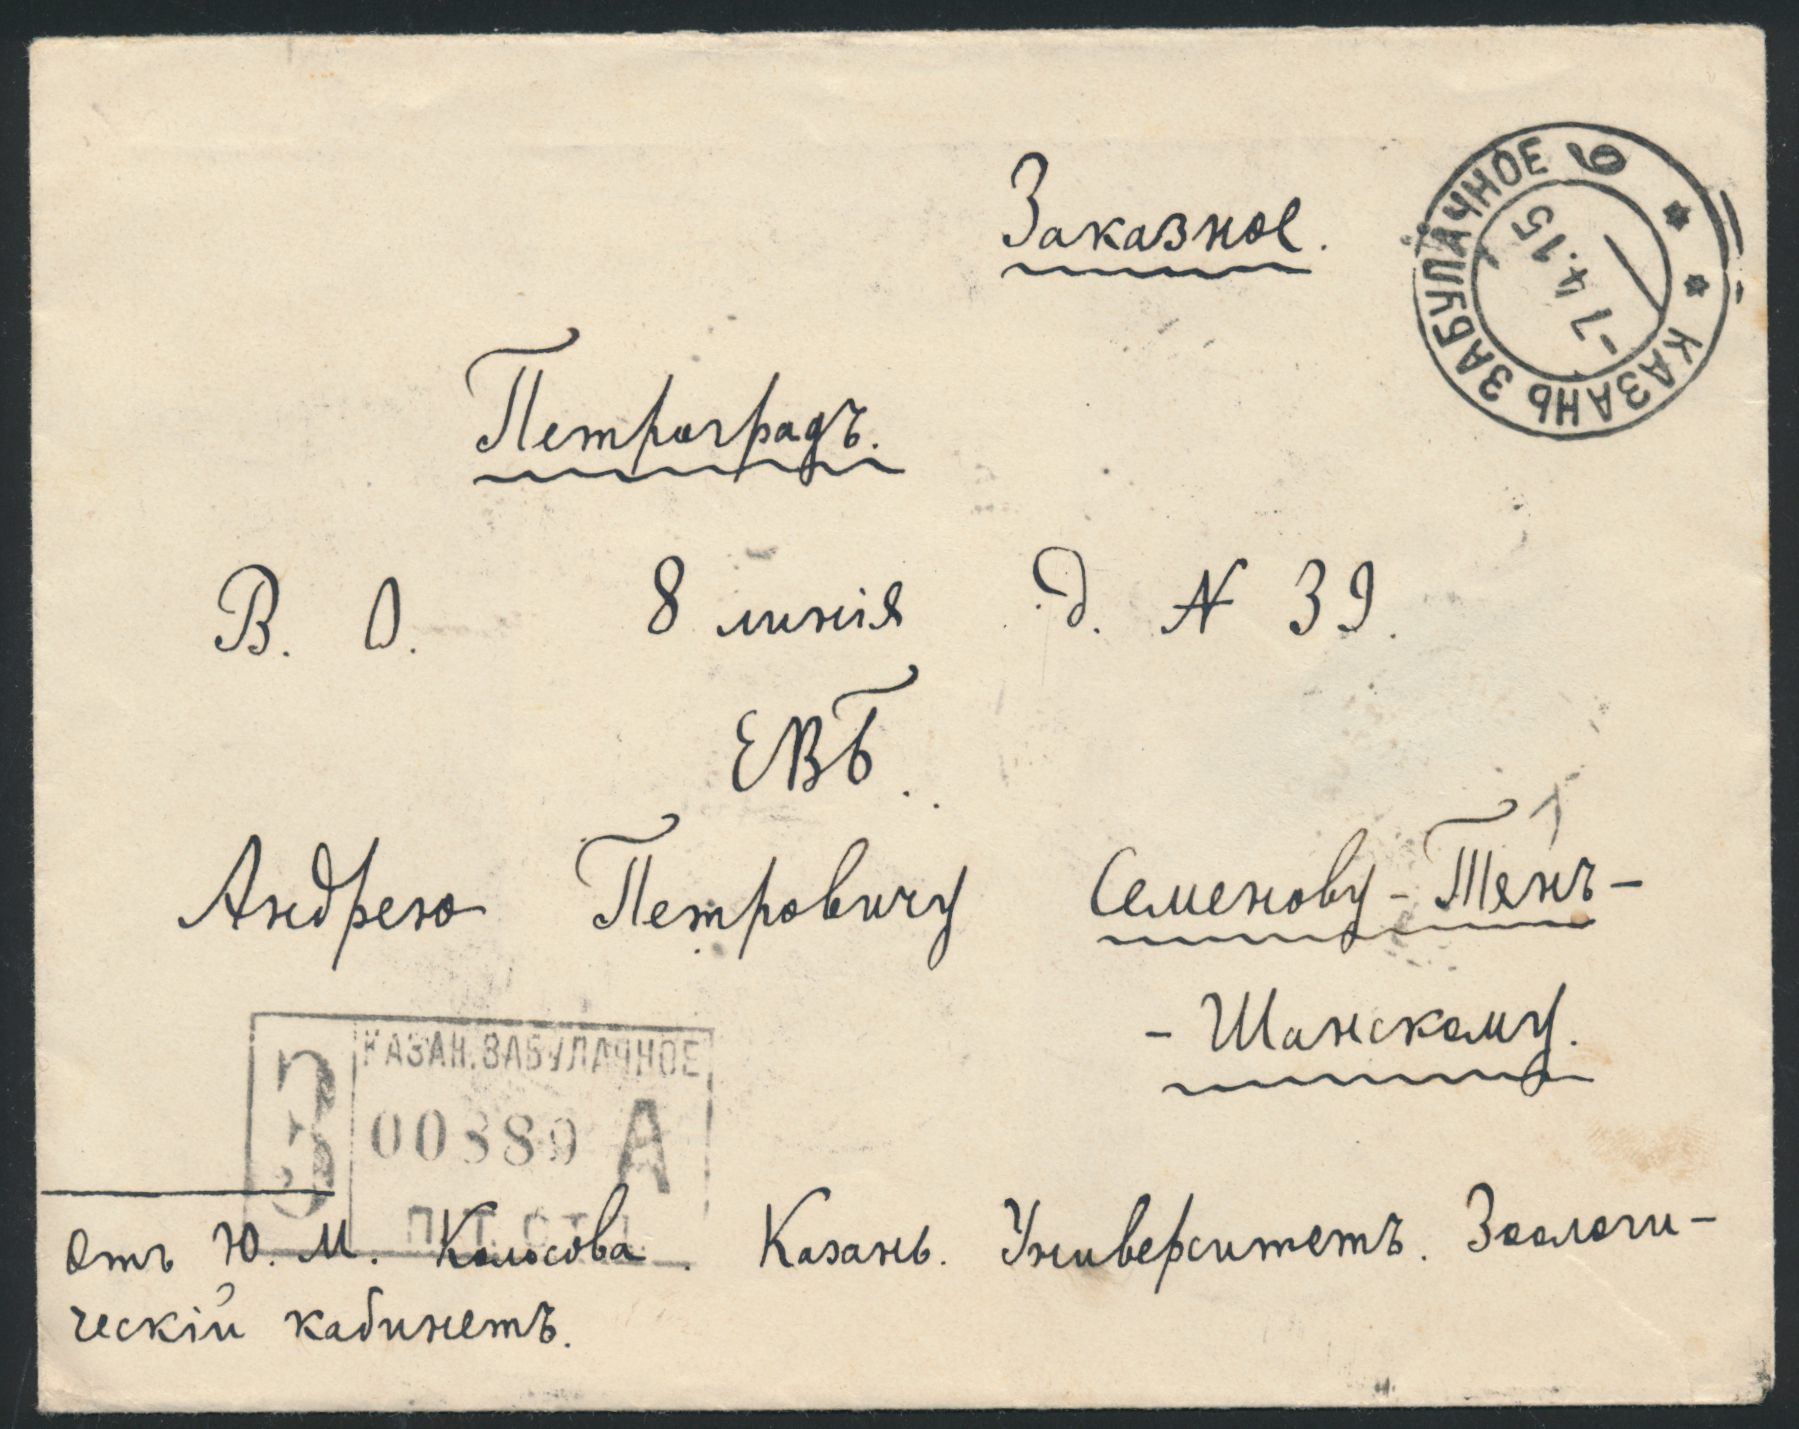 Заказное.
КАЗАНЬ ЗАБУЛАЧНОЕ 6
-7 4.15
Петроградъ.
В. О. 8 линія д. № 39.
ЕВБ.
Андрею Петровичу Семенову-Тянъ-
-Шанскому.
З КАЗАН. ЗАБУЛАЧНОЕ
А
Отъ Ю. М. Колосова. Казань. Университетъ. Зоологи-
ческій кабинетъ.